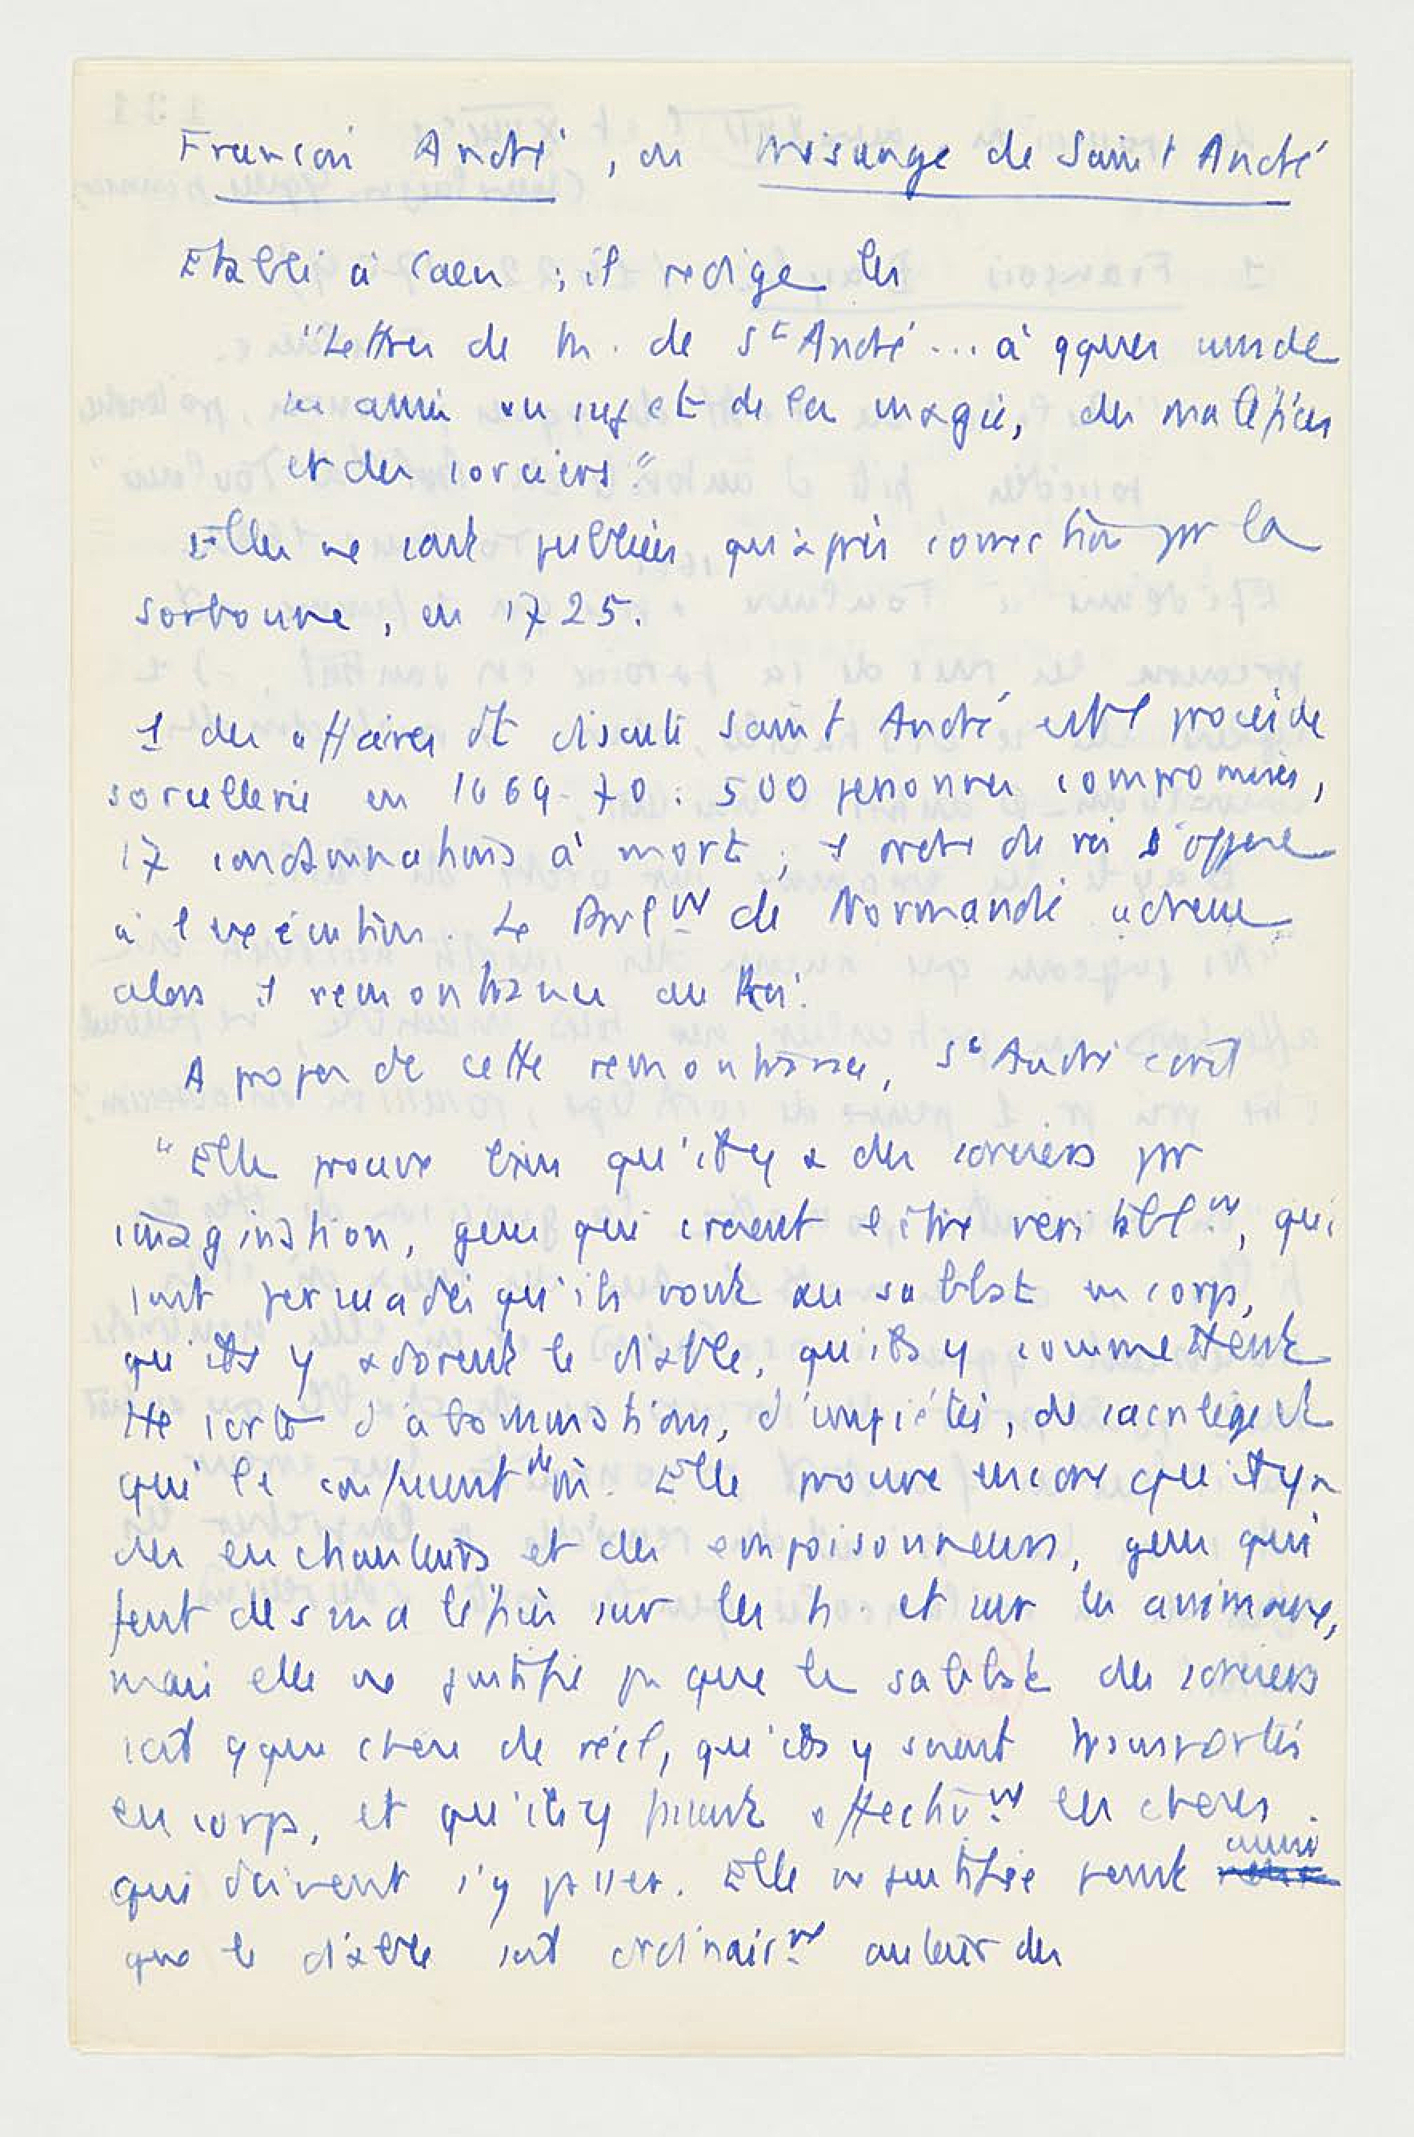 François André, ou Mésange de Saint André
Etabli à Caen ; il redige les
"Lettres de M. de St André ... à qques uns de
ses amis au sujet de la magie, des maléfices
et des sorciers."
Elles ne sont publiées qu'après correction pr la
Sorbonne, en 1725.
1 des affaires dt discute Saint André est l procès de
sorcellerie en 1669-70 : 500 personnes compromises,
17 condamnations à mort ; 1 ordre du roi s'oppose
à l exécution. Le Parl nt de Normandie adresse
alors 1 remontrance au Roi.
A propos de cette remontrance, St André écrit
"Elle prouve bien qu'il y a des sorciers pr
imagination, gens qui croient l être véritablnt, qui
sont persuadés qu'ils vont au sabbat en corps,
qu'ils y adorent le diable, qu'ils y commettent
tte sorte d'abominations, d'impiétés, de sacrilèges et
qui le confessent de m. Elle prouve encore qu'il y a
des enchanteurs et des empoisonneurs, gens qui
font des maléfices sur les h. et sur les animaux,
mais elle ne justifie pas que le sabbat des sorciers
soit qque chose de réel, qu'ils y soient transportés
en corps, et qu'ils y fassent effectivnt les choses
qui doivent s'y passer. Elle ne justifie point aussi
que le diable soit ordinairnt auteur des